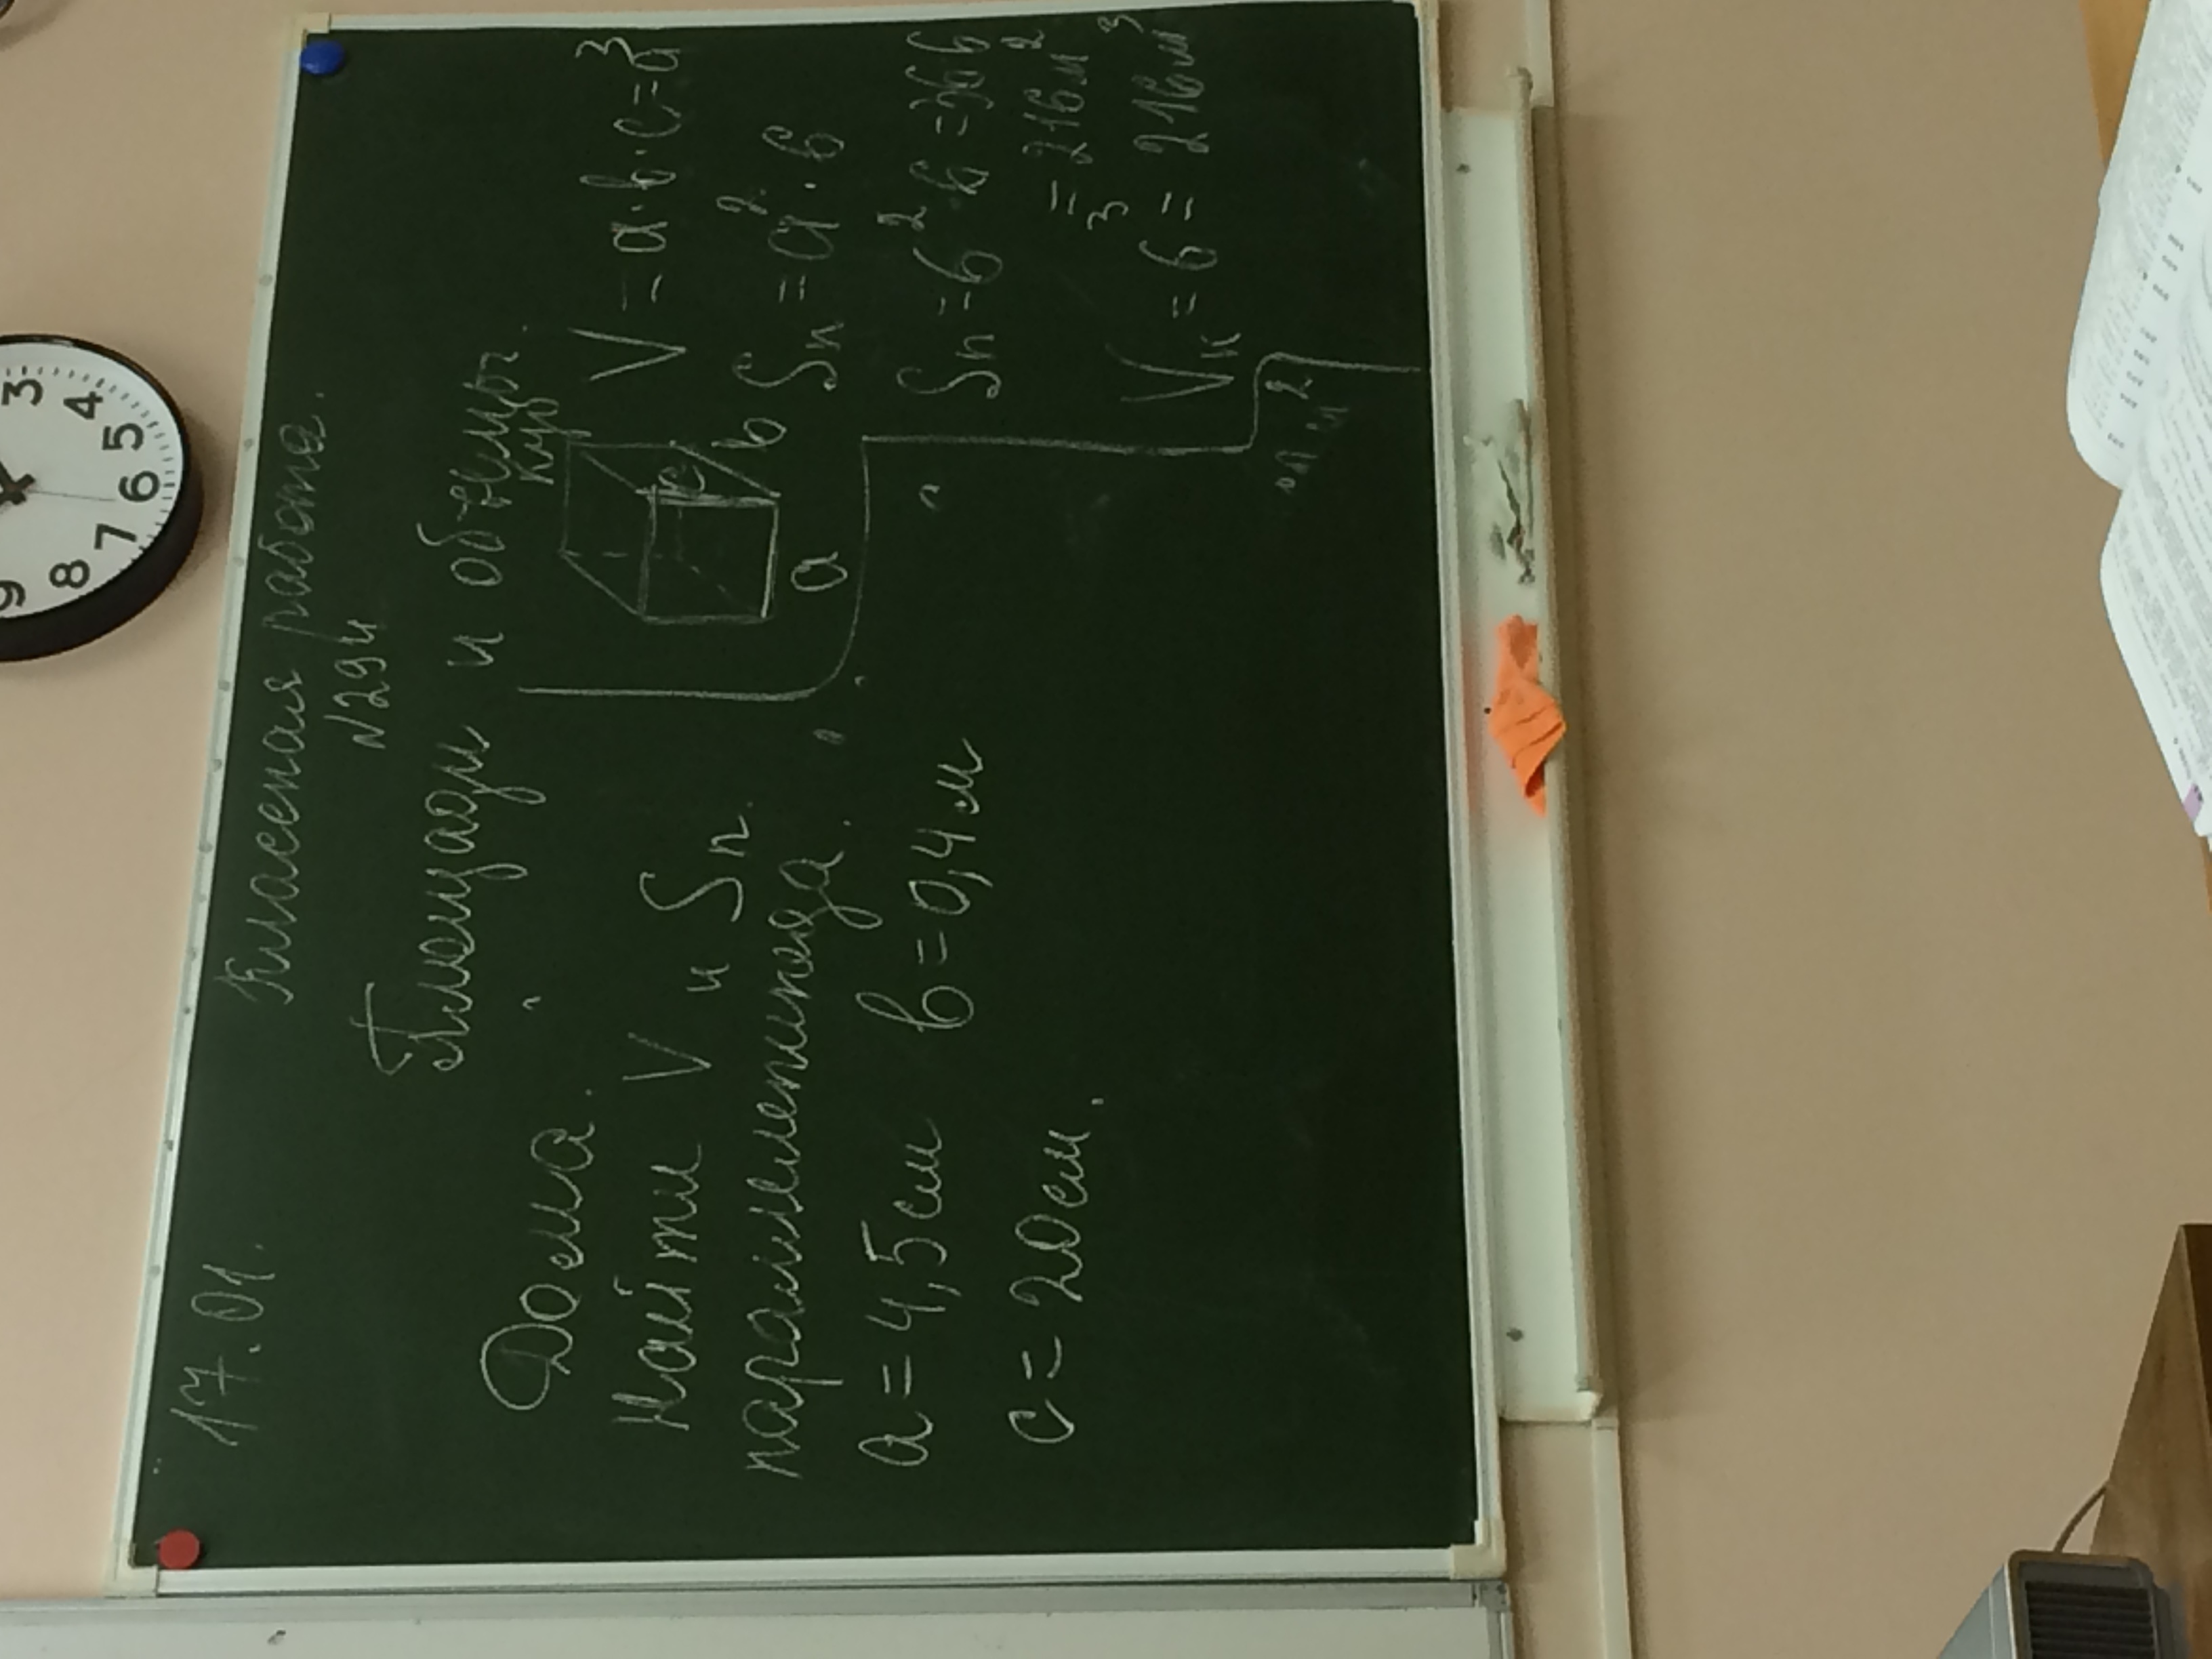 17.01. Классная работа.
N294
Площади и объемы.
Дома.
Найти V и Sп
параллелепипеда.
a = 4,5 см b = 0,4 м
c = 20 см.
куб
c
b
a
V = a · b · c = a³
Sп = a² · 6
Sп = 6² · 6 = 36 6
= 216 м²
Vк = 6³ = 216 м³
3
4
5
6
7
8
9